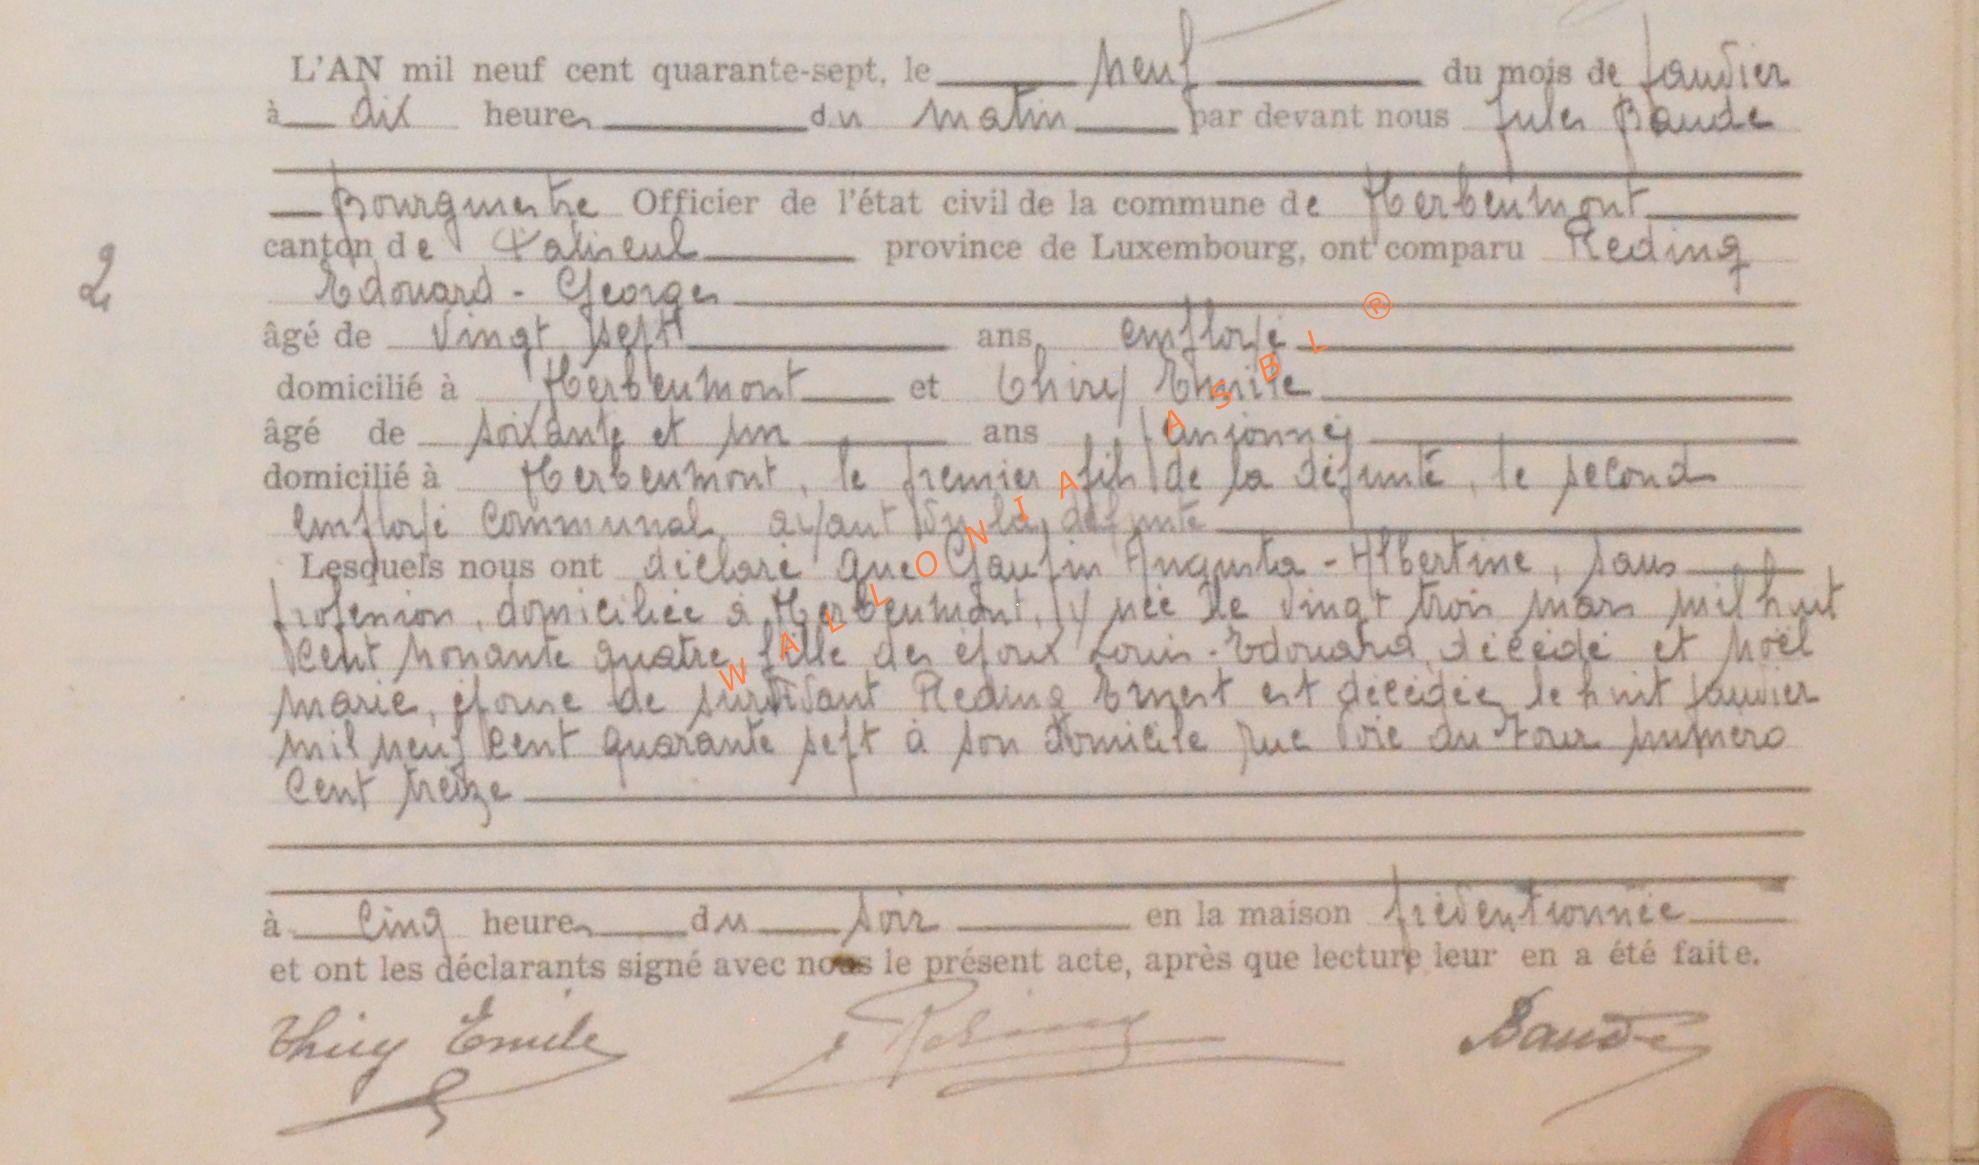 L'AN mil neuf cent quarante-sept, le neuf du mois de Janvier
à dix heures du matin par devant nous Jules Baude
Bourgmestre Officier de l'état civil de la commune de Herbeumont
canton de Paliseul province de Luxembourg, ont comparu Reding
2
Edouard - Georges
âgé de vingt sept ans, employé
domicilié à Herbeumont et Thiry Emile
âgé de soixante et un ans pensionné
domicilié à Herbeumont, le premier fils de la défunte, le second
employé communal ayant vu la défunte
Lesquels nous ont déclaré que Gaupin Augusta - Albertine, sans
profession, domiciliée à Herbeumont, y née le vingt trois mars mil huit
cent nonante quatre, fille des époux Louis - Edouard, décédé et Noël
Marie, épouse de survivant Reding Ernest est décédée le huit Janvier
mil neuf cent quarante sept à son domicile rue Voie du Four numéro
cent treize
à cinq heures du soir en la maison préventionnée
et ont les déclarants signé avec nous le présent acte, après que lecture leur en a été faite.
Thiry Emile Reding Baude
WALLONIA ASBL ®